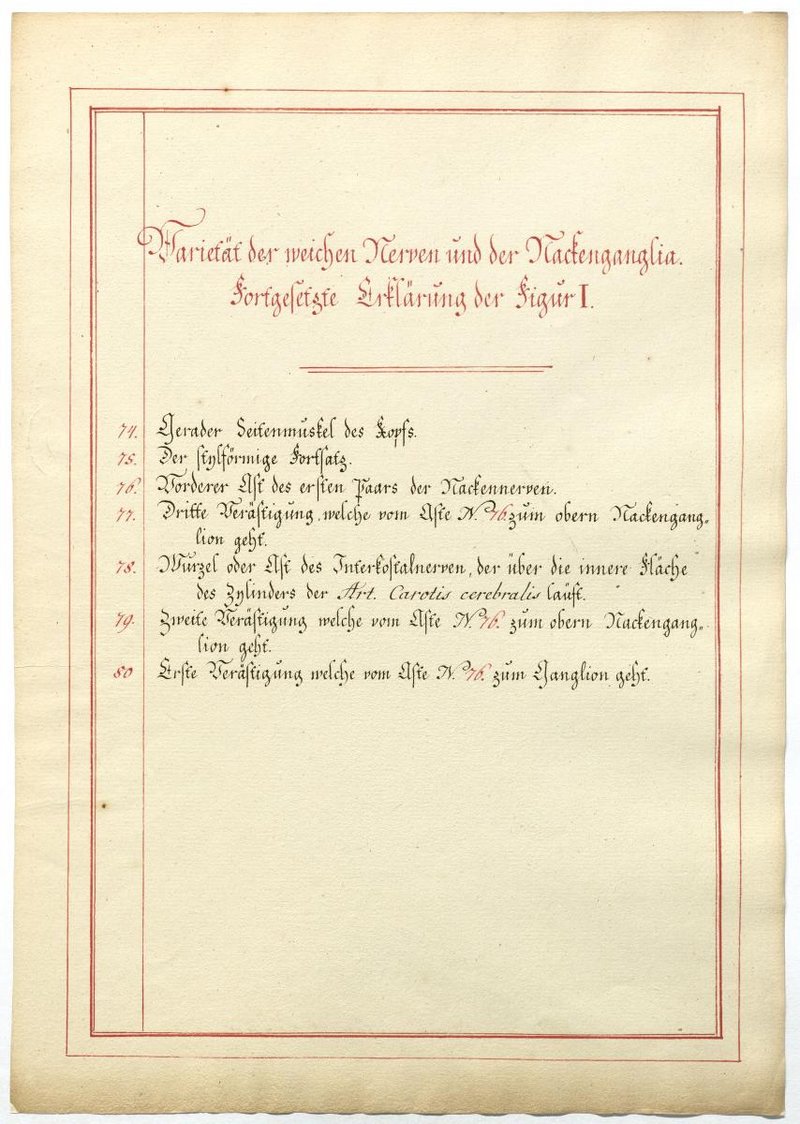 Varietät der weichen Nerven und der Nackenganglia.
Fortgesetzte Erklärung der Figur I.
74. Gerader Seitenmuskel des Kopfs.
75. Der stylförmige Fortsatz.
76. Vorderer Ast des ersten Paars der Nackennerven.
77. Dritte Verästigung, welche vom Aste N.º 76. zum obern Nackengang=
lion geht.
78. Wurzel oder Ast des Interkostalnerven, der über die innere Fläche
des Zylinders der Art. Carotis cerebralis läuft.
79. Zweite Verästigung welche vom Aste N.º 76. zum obern Nackengang=
lion geht.
80 Erste Verästigung welche vom Aste N.º 76. zum Ganglion geht.